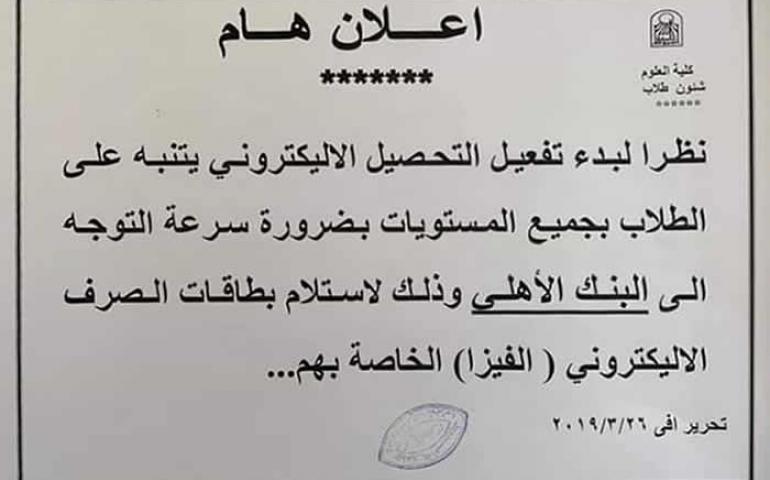 اعـــلان هـــام
*******
كلية العلوم
شئون طلاب
******
نظرا لبدء تفعيل التحصيل الاليكتروني يتنبه على
الطلاب بجميع المستويات بضرورة سرعة التوجه
الى البنك الأهلى وذلك لاستلام بطاقات الصرف
الاليكتروني ( الفيزا) الخاصة بهم...
تحرير افى ٢٠١٩/٣/٢٦